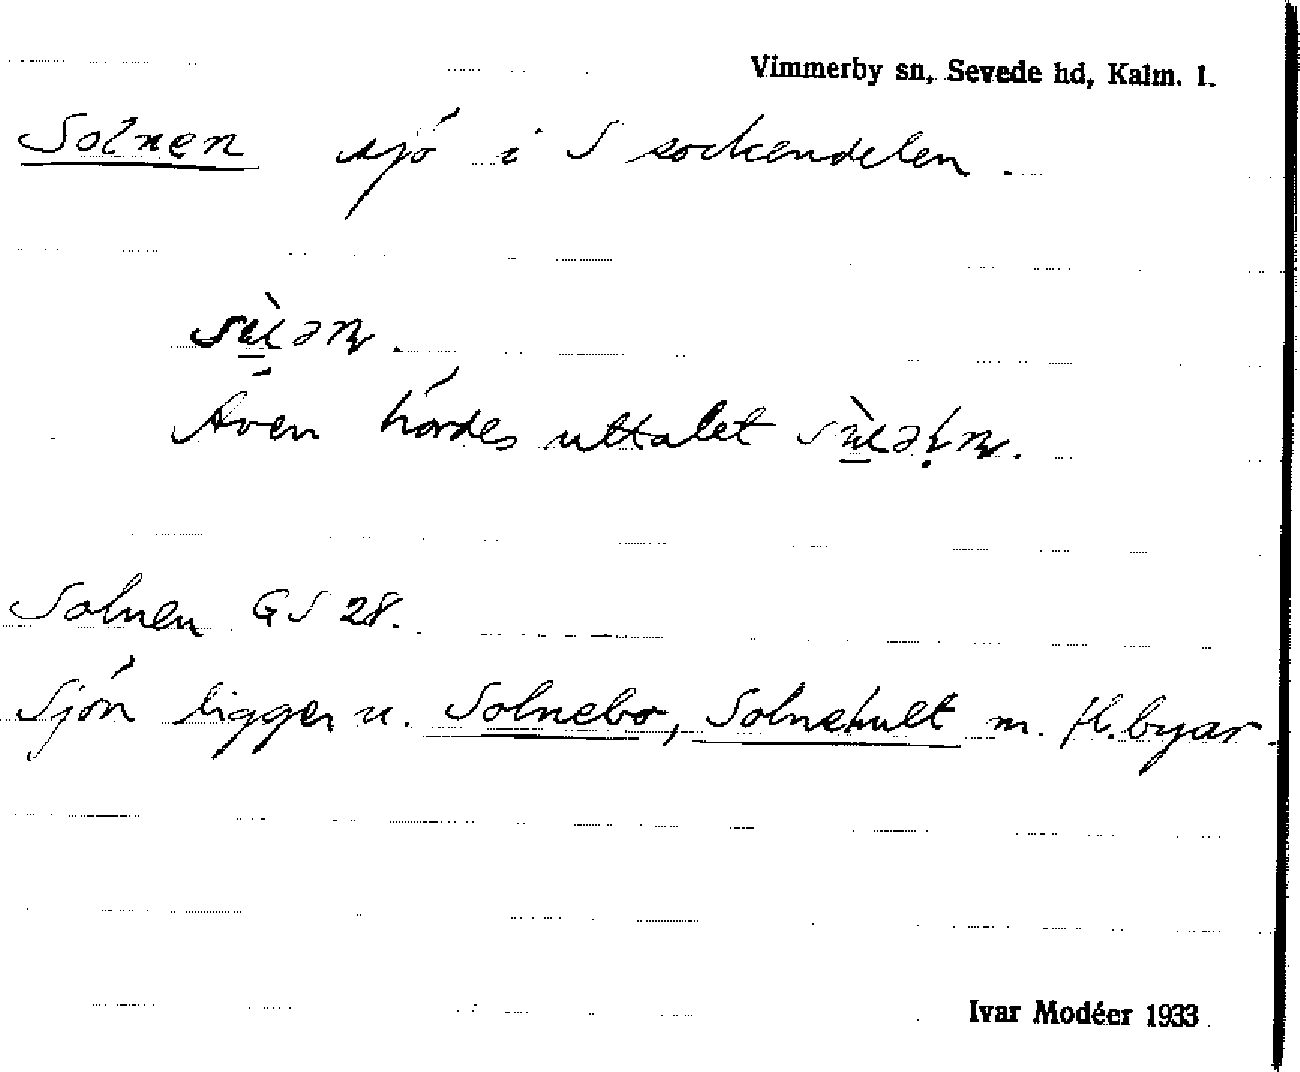 Vimmerby sn, Sevede hd, Kalm. l.
Solnen sjö i S sockendelen.
Även hördes uttalet
Solnen GS 28.
Sjön ligger v. Solnebo, Solnehult m. fl. byar.
Ivar Modéer 1933